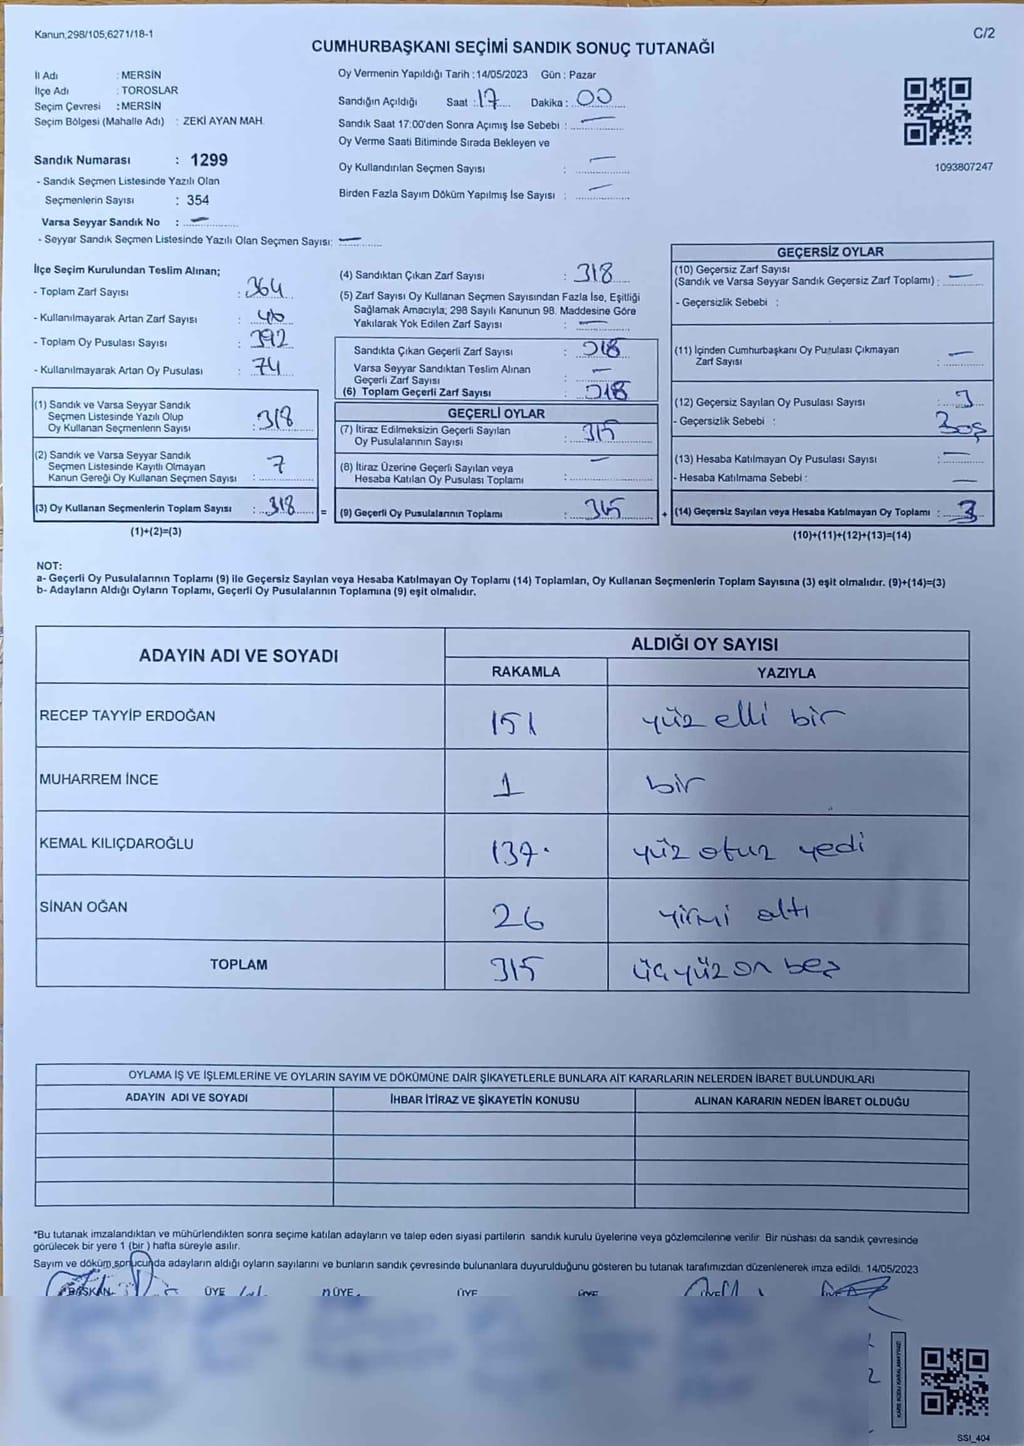 Kanun,298/105,6271/18-1
C/2
CUMHURBAŞKANI SEÇİMİ SANDIK SONUÇ TUTANAĞI
İl Adı : MERSİN
İlçe Adı : TOROSLAR
Seçim Çevresi : MERSİN
Seçim Bölgesi (Mahalle Adı) : ZEKİ AYAN MAH.
Sandık Numarası : 1299
- Sandık Seçmen Listesinde Yazılı Olan
Seçmenlerin Sayısı : 354
Varsa Seyyar Sandık No : —
- Seyyar Sandık Seçmen Listesinde Yazılı Olan Seçmen Sayısı: —
Oy Vermenin Yapıldığı Tarih : 14/05/2023 Gün : Pazar
Sandığın Açıldığı Saat : 17 Dakika : 00
Sandık Saat 17:00'den Sonra Açılmış İse Sebebi : —
Oy Verme Saati Bitiminde Sırada Bekleyen ve
Oy Kullandırılan Seçmen Sayısı : —
Birden Fazla Sayım Döküm Yapılmış İse Sayısı : —
1093807247
İlçe Seçim Kurulundan Teslim Alınan;
- Toplam Zarf Sayısı : 364
- Kullanılmayarak Artan Zarf Sayısı : 46
- Toplam Oy Pusulası Sayısı : 392
- Kullanılmayarak Artan Oy Pusulası : 74
(1) Sandık ve Varsa Seyyar Sandık
Seçmen Listesinde Yazılı Olup
Oy Kullanan Seçmenlerin Sayısı : 318
(2) Sandık ve Varsa Seyyar Sandık
Seçmen Listesinde Kayıtlı Olmayan
Kanun Gereği Oy Kullanan Seçmen Sayısı : 7
(3) Oy Kullanan Seçmenlerin Toplam Sayısı : 318 =
(1)+(2)=(3)
(4) Sandıktan Çıkan Zarf Sayısı : 318
(5) Zarf Sayısı Oy Kullanan Seçmen Sayısından Fazla İse, Eşitliği
Sağlamak Amacıyla; 298 Sayılı Kanunun 98. Maddesine Göre
Yakılarak Yok Edilen Zarf Sayısı : —
Sandıkta Çıkan Geçerli Zarf Sayısı : 318
Varsa Seyyar Sandıktan Teslim Alınan
Geçerli Zarf Sayısı : —
(6) Toplam Geçerli Zarf Sayısı : 318
GEÇERLİ OYLAR
(7) İtiraz Edilmeksizin Geçerli Sayılan
Oy Pusulalarının Sayısı : 315
(8) İtiraz Üzerine Geçerli Sayılan veya
Hesaba Katılan Oy Pusulası Toplamı : —
(9) Geçerli Oy Pusulalarının Toplamı : 315 +
GEÇERSİZ OYLAR
(10) Geçersiz Zarf Sayısı
(Sandık ve Varsa Seyyar Sandık Geçersiz Zarf Toplamı) : —
- Geçersizlik Sebebi :
(11) İçinden Cumhurbaşkanı Oy Pusulası Çıkmayan
Zarf Sayısı : —
(12) Geçersiz Sayılan Oy Pusulası Sayısı : 3
- Geçersizlik Sebebi : Boş
(13) Hesaba Katılmayan Oy Pusulası Sayısı : —
- Hesaba Katılmama Sebebi : —
(14) Geçersiz Sayılan veya Hesaba Katılmayan Oy Toplamı : 3
(10)+(11)+(12)+(13)=(14)
NOT:
a- Geçerli Oy Pusulalarının Toplamı (9) ile Geçersiz Sayılan veya Hesaba Katılmayan Oy Toplamı (14) Toplamları, Oy Kullanan Seçmenlerin Toplam Sayısına (3) eşit olmalıdır. (9)+(14)=(3)
b- Adayların Aldığı Oyların Toplamı, Geçerli Oy Pusulalarının Toplamına (9) eşit olmalıdır.
ADAYIN ADI VE SOYADI
ALDIĞI OY SAYISI
RAKAMLA YAZIYLA
RECEP TAYYİP ERDOĞAN 151 yüz elli bir
MUHARREM İNCE 1 bir
KEMAL KILIÇDAROĞLU 137. yüz otuz yedi
SİNAN OĞAN 26 yirmi altı
TOPLAM 315 üçyüz on beş
OYLAMA İŞ VE İŞLEMLERİNE VE OYLARIN SAYIM VE DÖKÜMÜNE DAİR ŞİKAYETLERLE BUNLARA AİT KARARLARIN NELERDEN İBARET BULUNDUKLARI
ADAYIN ADI VE SOYADI İHBAR İTİRAZ VE ŞİKAYETİN KONUSU ALINAN KARARIN NEDEN İBARET OLDUĞU
*Bu tutanak imzalandıktan ve mühürlendikten sonra seçime katılan adayların ve talep eden siyasi partilerin sandık kurulu üyelerine veya gözlemcilerine verilir. Bir nüshası da sandık çevresinde
görülecek bir yere 1 (bir) hafta süreyle asılır.
Sayım ve döküm sonucunda adayların aldığı oyların sayılarını ve bunların sandık çevresinde bulunanlara duyurulduğunu gösteren bu tutanak tarafımızdan düzenlenerek imza edildi. 14/05/2023
BAŞKAN ÜYE ÜYE ÜYE ÜYE ÜYE ÜYE
SSI_404